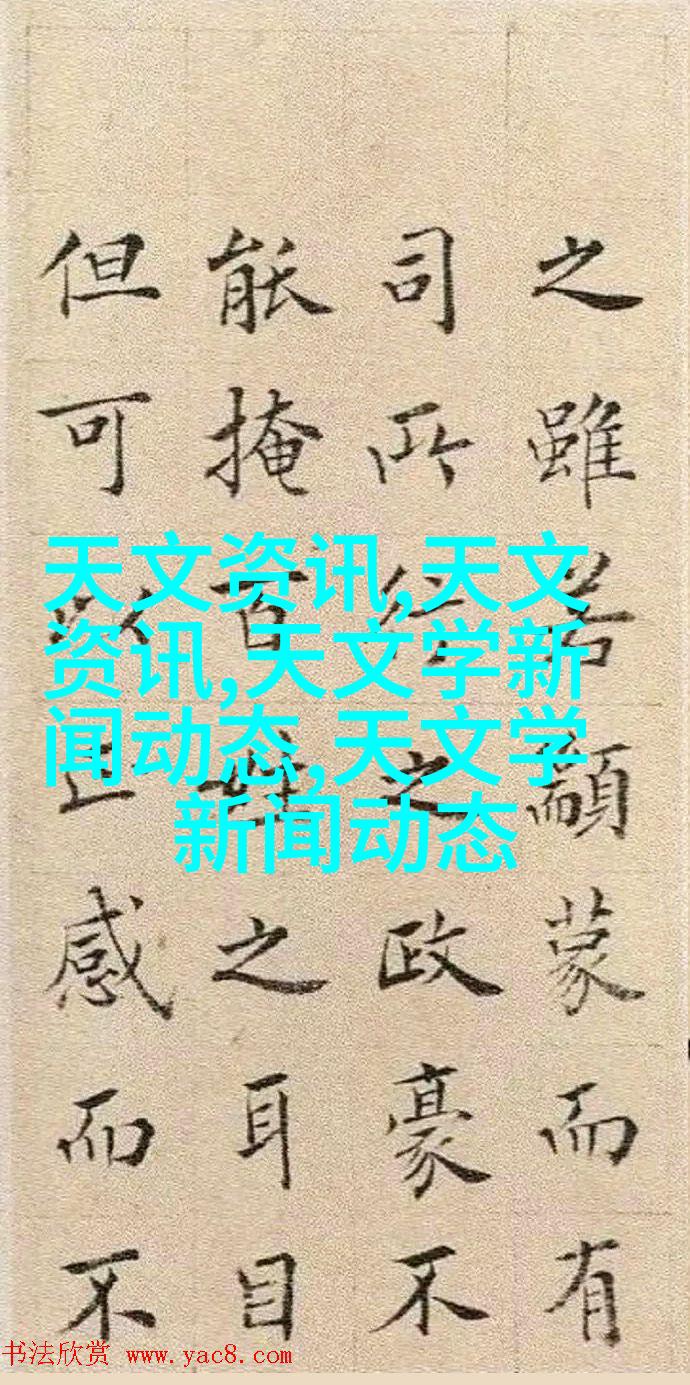 之雖若顓蒙而有
司所行之政豪不
能掩百姓之耳目
但可以上感而不
天文资讯,天文
资讯,天文学新
闻动态,天文学
新闻动态
书法欣赏 www.yac8.com